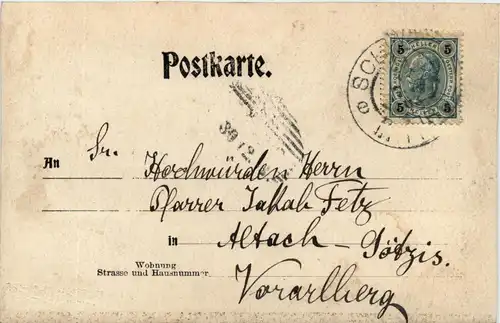 Postkarte.
5 5
5 5
An Sr. Hochwürden Herrn
Pfarrer Jakob Fetz
in Altach-Götzis.
Wohnung
Strasse und Hausnummer
Vorarlberg